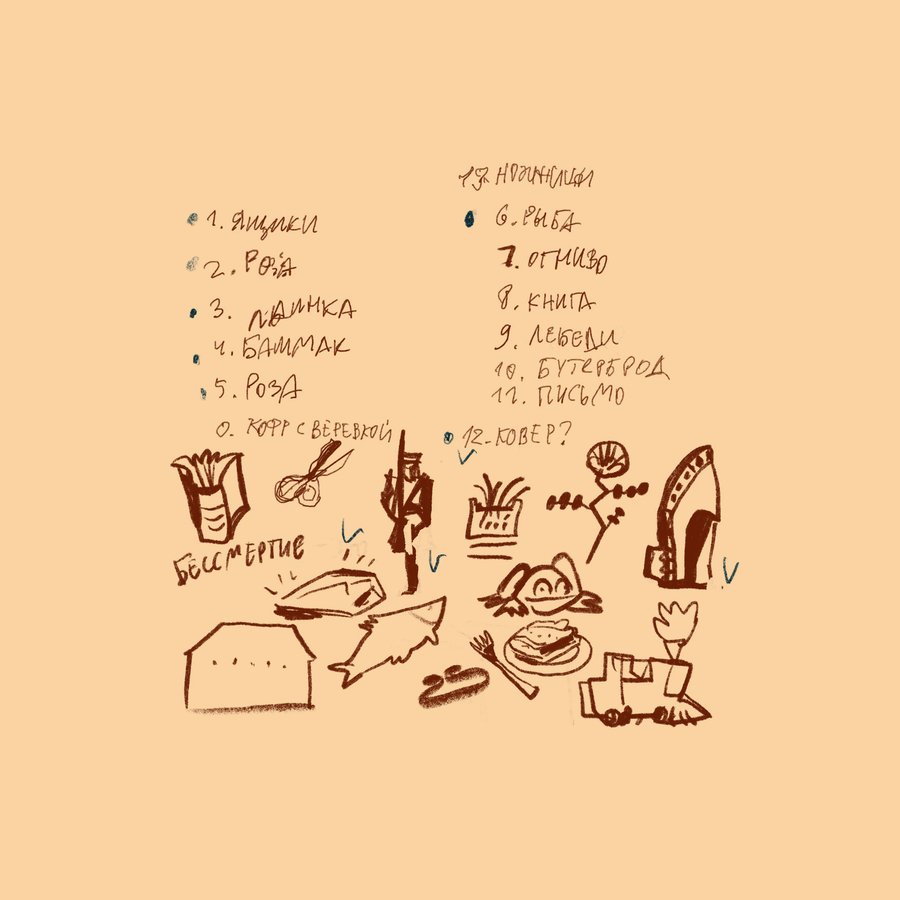 1. ЯЩИКИ
2. РОЗА
3. ЛЬДИНКА
4. БАШМАК
5. РОЗА
0. КОФР С ВЕРЕВКОЙ
13. НОЖНИЦЫ
6. РЫБА
7. ОГНИВО
8. КНИГА
9. ЛЕБЕДИ
10. БУТЕРБРОД
11. ПИСЬМО
12. КОВЕР?
БЕССМЕРТИЕ